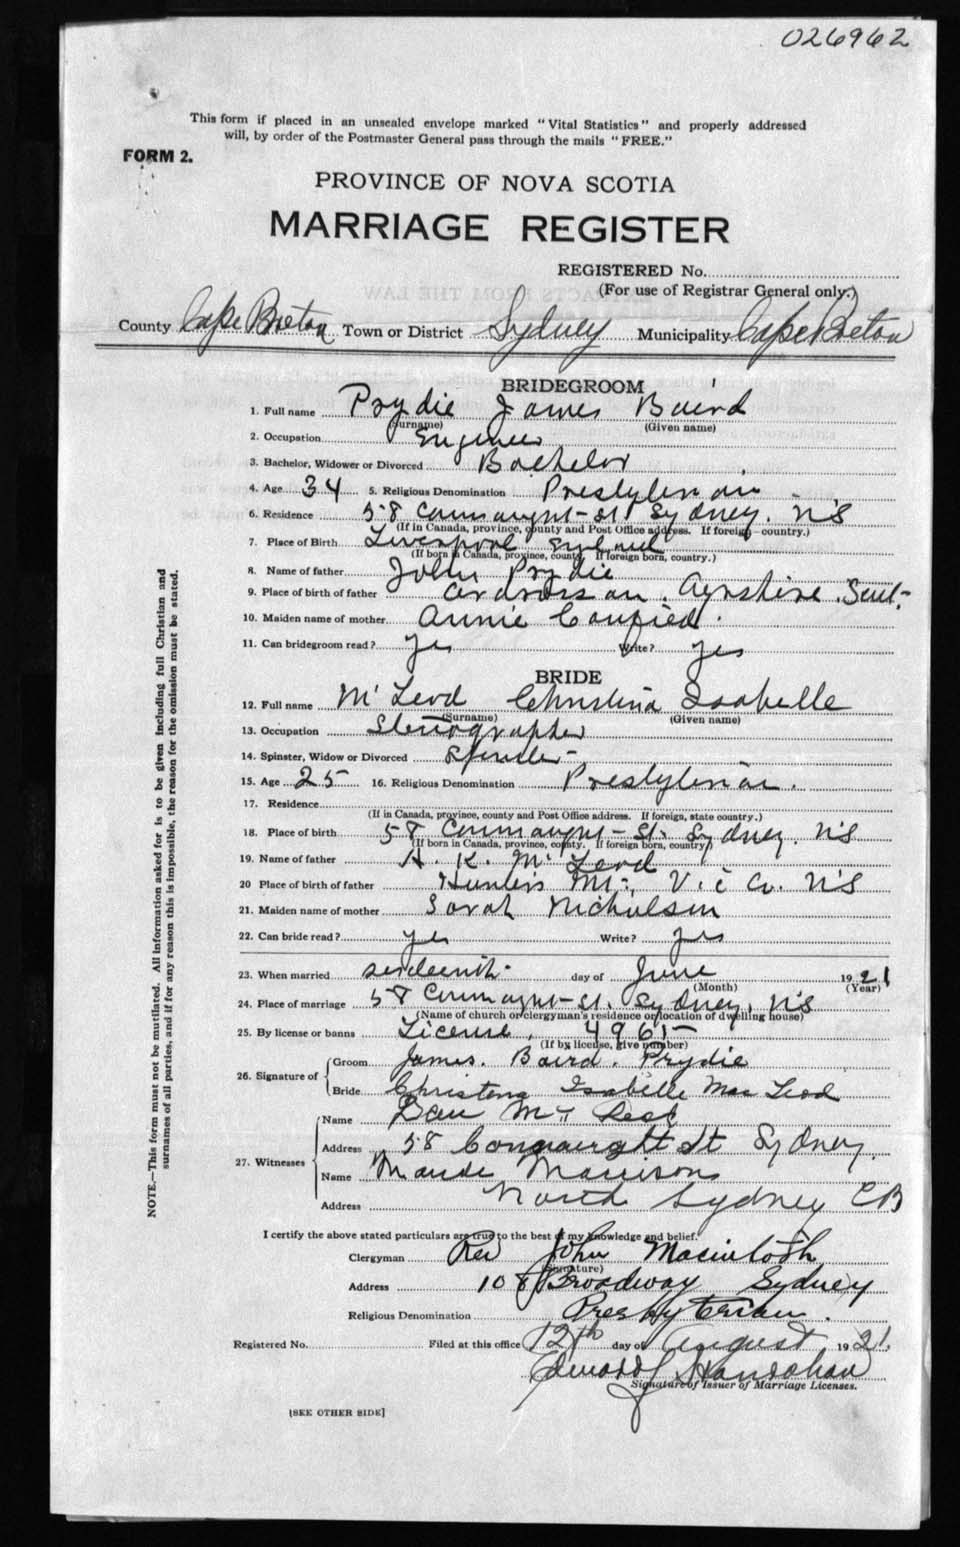 026962
This form if placed in an unsealed envelope marked "Vital Statistics" and properly addressed
will, by order of the Postmaster General pass through the mails "FREE."
FORM 2.
PROVINCE OF NOVA SCOTIA
MARRIAGE REGISTER
REGISTERED No.
(For use of Registrar General only.)
County Cape Breton Town or District Sydney Municipality Cape Breton
BRIDEGROOM
1. Full name Prydie James Baird
(Surname) (Given name)
2. Occupation Engineer
3. Bachelor, Widower or Divorced Bachelor
4. Age 34 5. Religious Denomination Presbyterian
6. Residence 58 Connaught St Sydney, NS
(If in Canada, province, county and Post Office address. If foreign—country.)
7. Place of Birth Liverpool England
(If born in Canada, province, county, If foreign born, country.)
8. Name of father John Prydie
9. Place of birth of father Ardrossan, Ayrshire, Scot-
10. Maiden name of mother Annie
11. Can bridegroom read? Yes Write? yes
BRIDE
12. Full name McLeod Christina Isabelle
(Surname) (Given name)
13. Occupation Stenographer
14. Spinster, Widow or Divorced Spinster
15. Age 25 16. Religious Denomination Presbyterian.
17. Residence
(If in Canada, province, county and Post Office address. If foreign, state country.)
18. Place of birth 58 Connaught St. Sydney. NS
(If born in Canada, province, county. If foreign born, country.)
19. Name of father A. K. McLeod
20 Place of birth of father Hunters Mt., Vic Co. NS
21. Maiden name of mother Sarah Nicholson
22. Can bride read? yes Write? yes
23. When married day of June 1921
(Month) (Year)
24. Place of marriage 58 Connaught St. Sydney, NS
(Name of church or clergyman's residence or location of dwelling house)
25. By license or banns License, 4965
(If by license, give number)
26. Signature of Groom James. Baird. Prydie
Bride Christena Isabelle MacLeod
27. Witnesses Name Dan
Address 58 Connaught St Sydney.
Name Maude Morrison
Address North Sydney CB
I certify the above stated particulars are true to the best of my knowledge and belief.
Clergyman Rev John Macintosh
(Signature)
Address 108 Broadway Sydney
Religious Denomination Presbyterian.
Registered No. Filed at this office 12th day of August 1921
Edward J Hanrahan
Signature of Issuer of Marriage Licenses.
[SEE OTHER SIDE]
NOTE.—This form must not be mutilated. All information asked for is to be given including full Christian and
surnames of all parties, and if for any reason this is impossible, the reason for the omission must be stated.